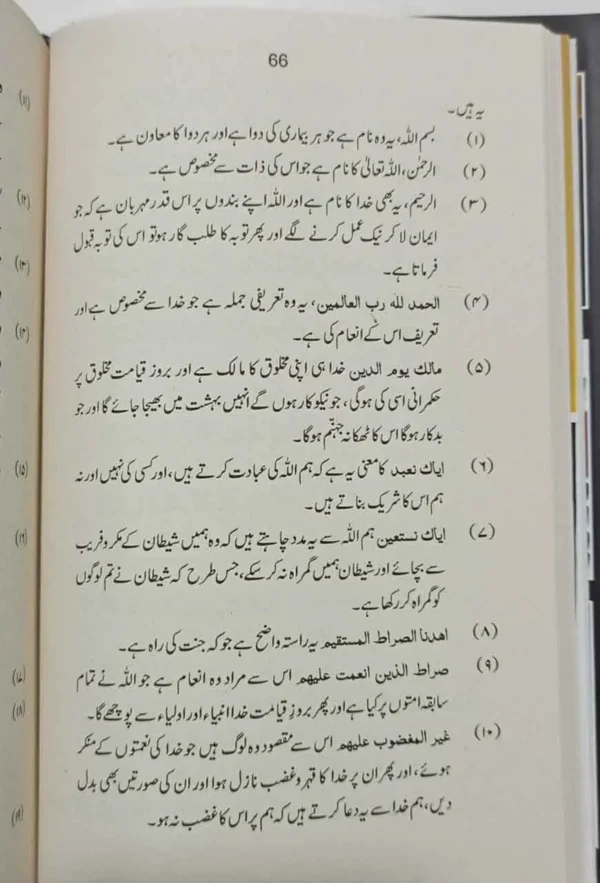 66
یہ ہیں۔
(۱) بسم اللہ، یہ وہ نام ہے جو ہر بیماری کی دوا ہے اور ہر دوا کا معاون ہے۔
(۲) الرحمٰن، اللہ تعالیٰ کا نام ہے جو اس کی ذات سے مخصوص ہے۔
(۳) الرحیم، یہ بھی خدا کا نام ہے اور اللہ اپنے بندوں پر اس قدر مہربان ہے کہ جو
ایمان لا کر نیک عمل کرنے لگے اور پھر توبہ کا طلب گار ہو تو اس کی توبہ قبول
فرماتا ہے۔
(۴) الحمد للہ رب العالمین، یہ وہ تعریفی جملہ ہے جو خدا سے مخصوص ہے اور
تعریف اس کے انعام کی ہے۔
(۵) مالك یوم الدین خدا ہی اپنی مخلوق کا مالک ہے اور بروز قیامت مخلوق پر
حکمرانی اسی کی ہوگی، جو نیکو کار ہوں گے انہیں بہشت میں بھیجا جائے گا اور جو
بدکار ہوگا اس کا ٹھکانہ جہنّم ہوگا۔
(۶) ایاك نعبد کا معنی یہ ہے کہ ہم اللہ کی عبادت کرتے ہیں، اور کسی کی نہیں اور نہ
ہم اس کا شریک بناتے ہیں۔
(۷) ایاك نستعین ہم اللہ سے یہ مدد چاہتے ہیں کہ وہ ہمیں شیطان کے مکر و فریب
سے بچائے اور شیطان ہمیں گمراہ نہ کر سکے، جس طرح کہ شیطان نے تم لوگوں
کو گمراہ کر رکھا ہے۔
(۸) اھدنا الصراط المستقیم یہ راستہ واضح ہے جو کہ جنت کی راہ ہے۔
(۹) صراط الذین انعمت علیھم اس سے مراد وہ انعام ہے جو اللہ نے تمام
سابقہ امتوں پر کیا ہے اور پھر بروزِ قیامت خدا انبیاء اور اولیاء سے پوچھے گا۔
(۱۰) غیر المغضوب علیھم اس سے مقصود وہ لوگ ہیں جو خدا کی نعمتوں کے منکر
ہوئے، اور پھر ان پر خدا کا قہر و غضب نازل ہوا اور ان کی صورتیں بھی بدل
دیں، ہم خدا سے یہ دعا کرتے ہیں کہ ہم پر اس کا غضب نہ ہو۔
(۱۱)
(۱۲)
(۱۳)
(۱۴)
(۱۵)
(۱۶)
(۱۷)
(۱۸)
(۱۹)